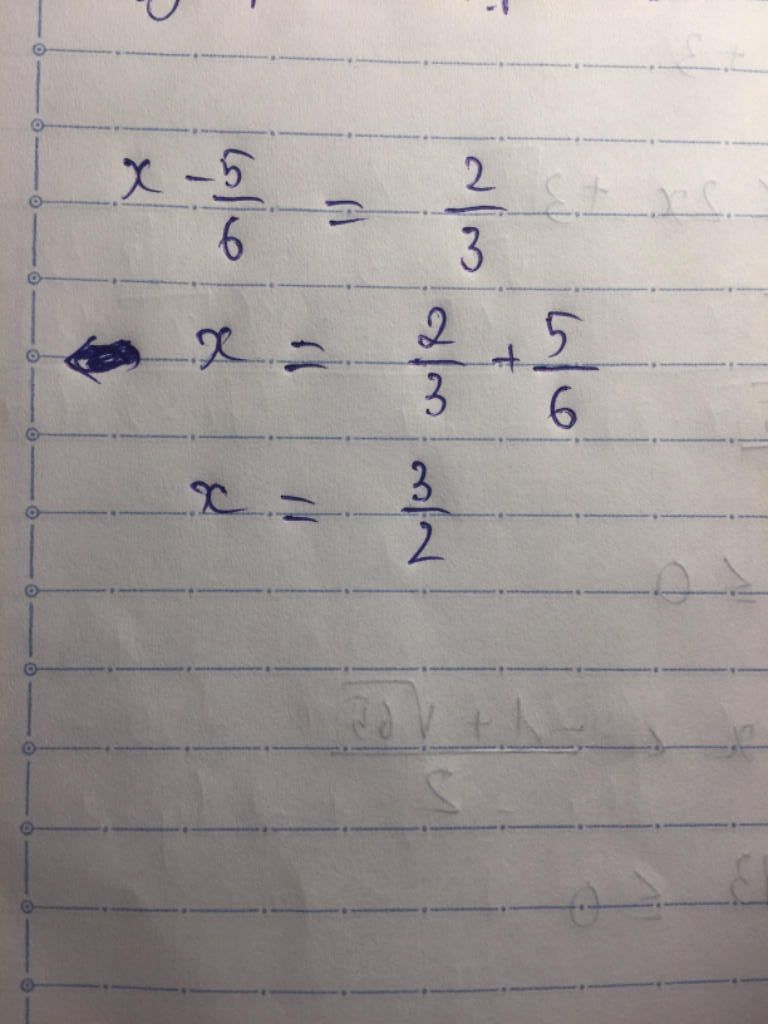 x - 5/6 = 2/3
x = 2/3 + 5/6
x = 3/2